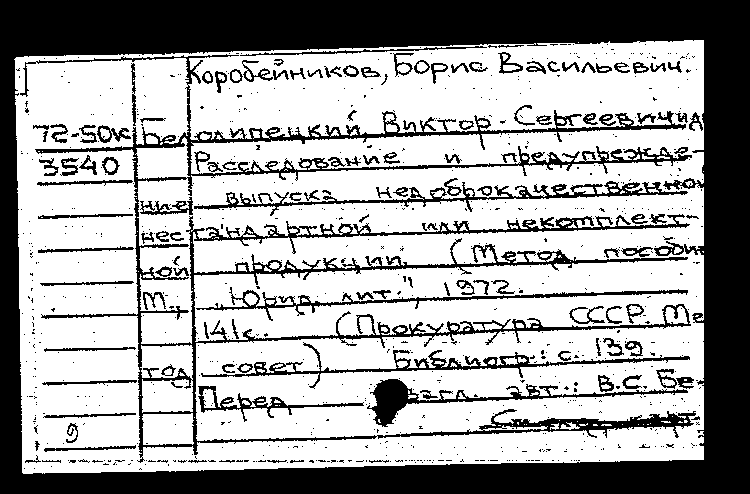 Коробейников, Борис Васильевич.
72-50к Белолипецкий, Виктор Сергеевич и др
3540 Расследование и предупрежде-
ние выпуска недоброкачественной
нестандартной или некомплект-
ной продукции. (Метод. пособи
М., „Юрид. лит.", 1972.
141с. (Прокуратура СССР. Ме
тод совет). Библиогр.: с. 139.
Перед загл. авт.: В.С. Бе-
9